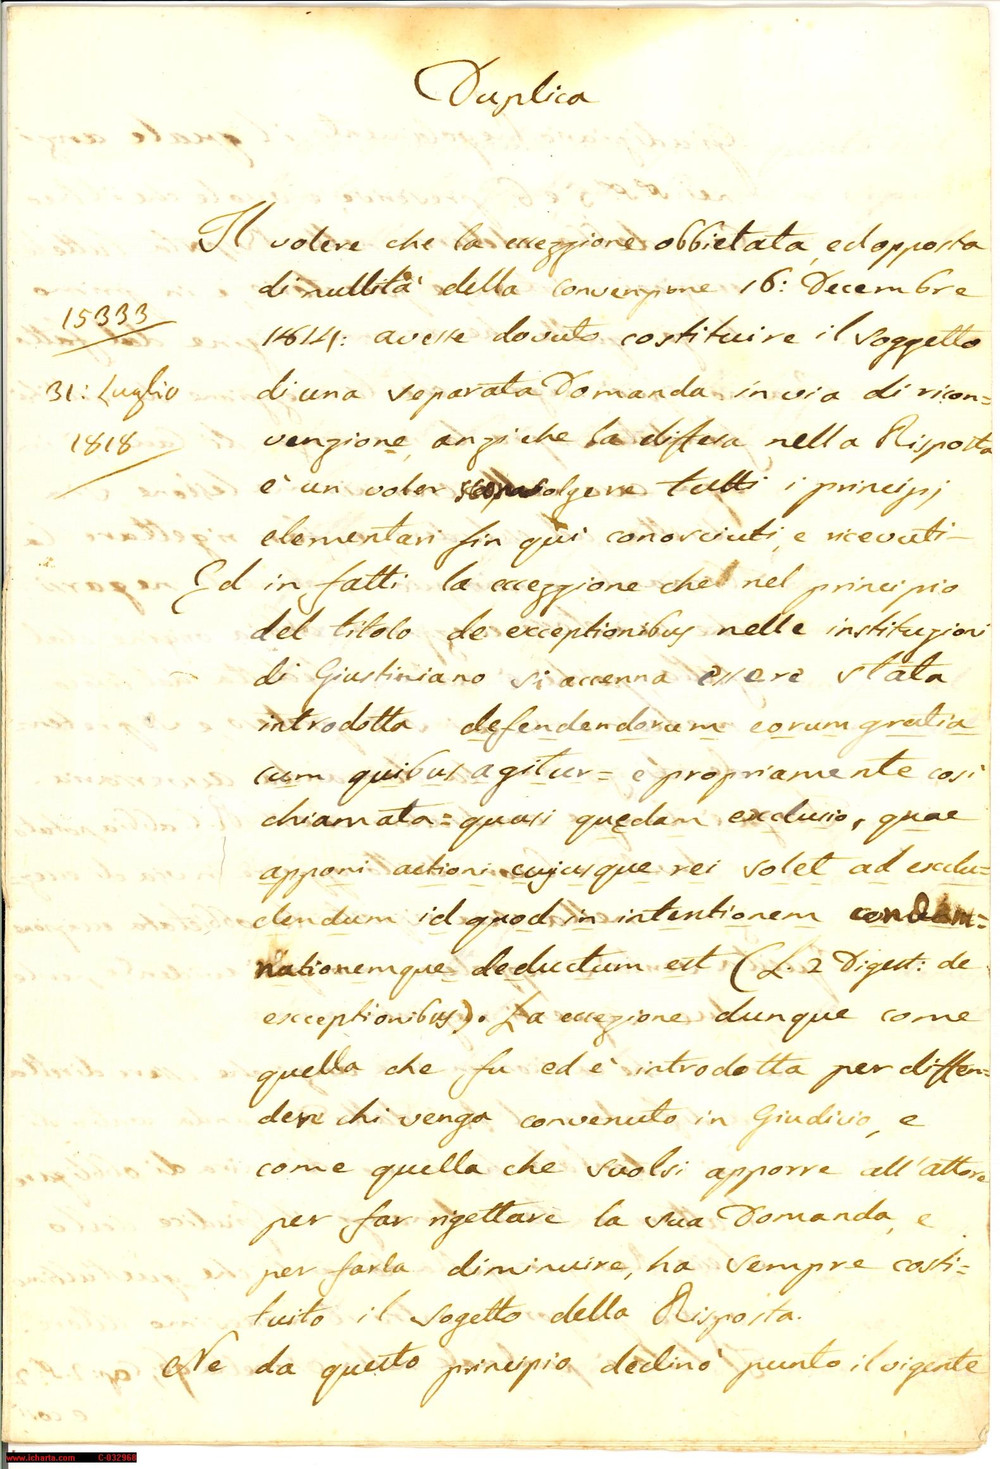 Duplica
Il volere che la eccezzione obbietata, ed opposta
di nullità della convenzione 16: Decembre
15333
1814: avesse dovuto costituire il soggetto
31: Luglio
di una separata Domanda in via di ricon=
1818
venzione, anziche la difesa nella Risposta
è un voler sconvolgere tutti i principj
elementari fin qui conosciuti, e ricevuti-
Ed in fatti la eccezzione che nel principio
del titolo de exceptionibus nelle instituzioni
di Giustiniano si accenna essere stata
introdotta defendendorum eorum gratia
cum quibus agitur= è propriamente così
chiamata= quasi quedam exclusio, quae
apponi actioni cujusque rei solet ad exclu=
dendum id quod in intentionem condem=
nationemque deductum est (L. 2 Digest: de
exceptionibus). La eccezione dunque come
quella che fu ed è introdotta per diffen=
dere chi venga convenuto in Giudicio, e
come quella che suolsi apporre all'attore
per far rigettare la sua Domanda, e
per farla diminuire, ha sempre costi=
tuito il sogetto della Risposta.
Ne da questo principio declinò punto il vigente
www.icharta.com C-032960